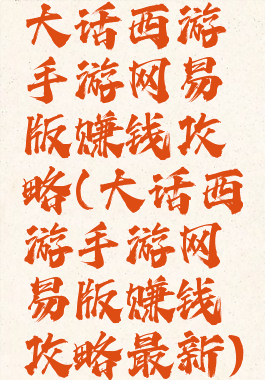 大话西游
手游网易
版赚钱攻
略(大话西
游手游网
易版赚钱
攻略最新)